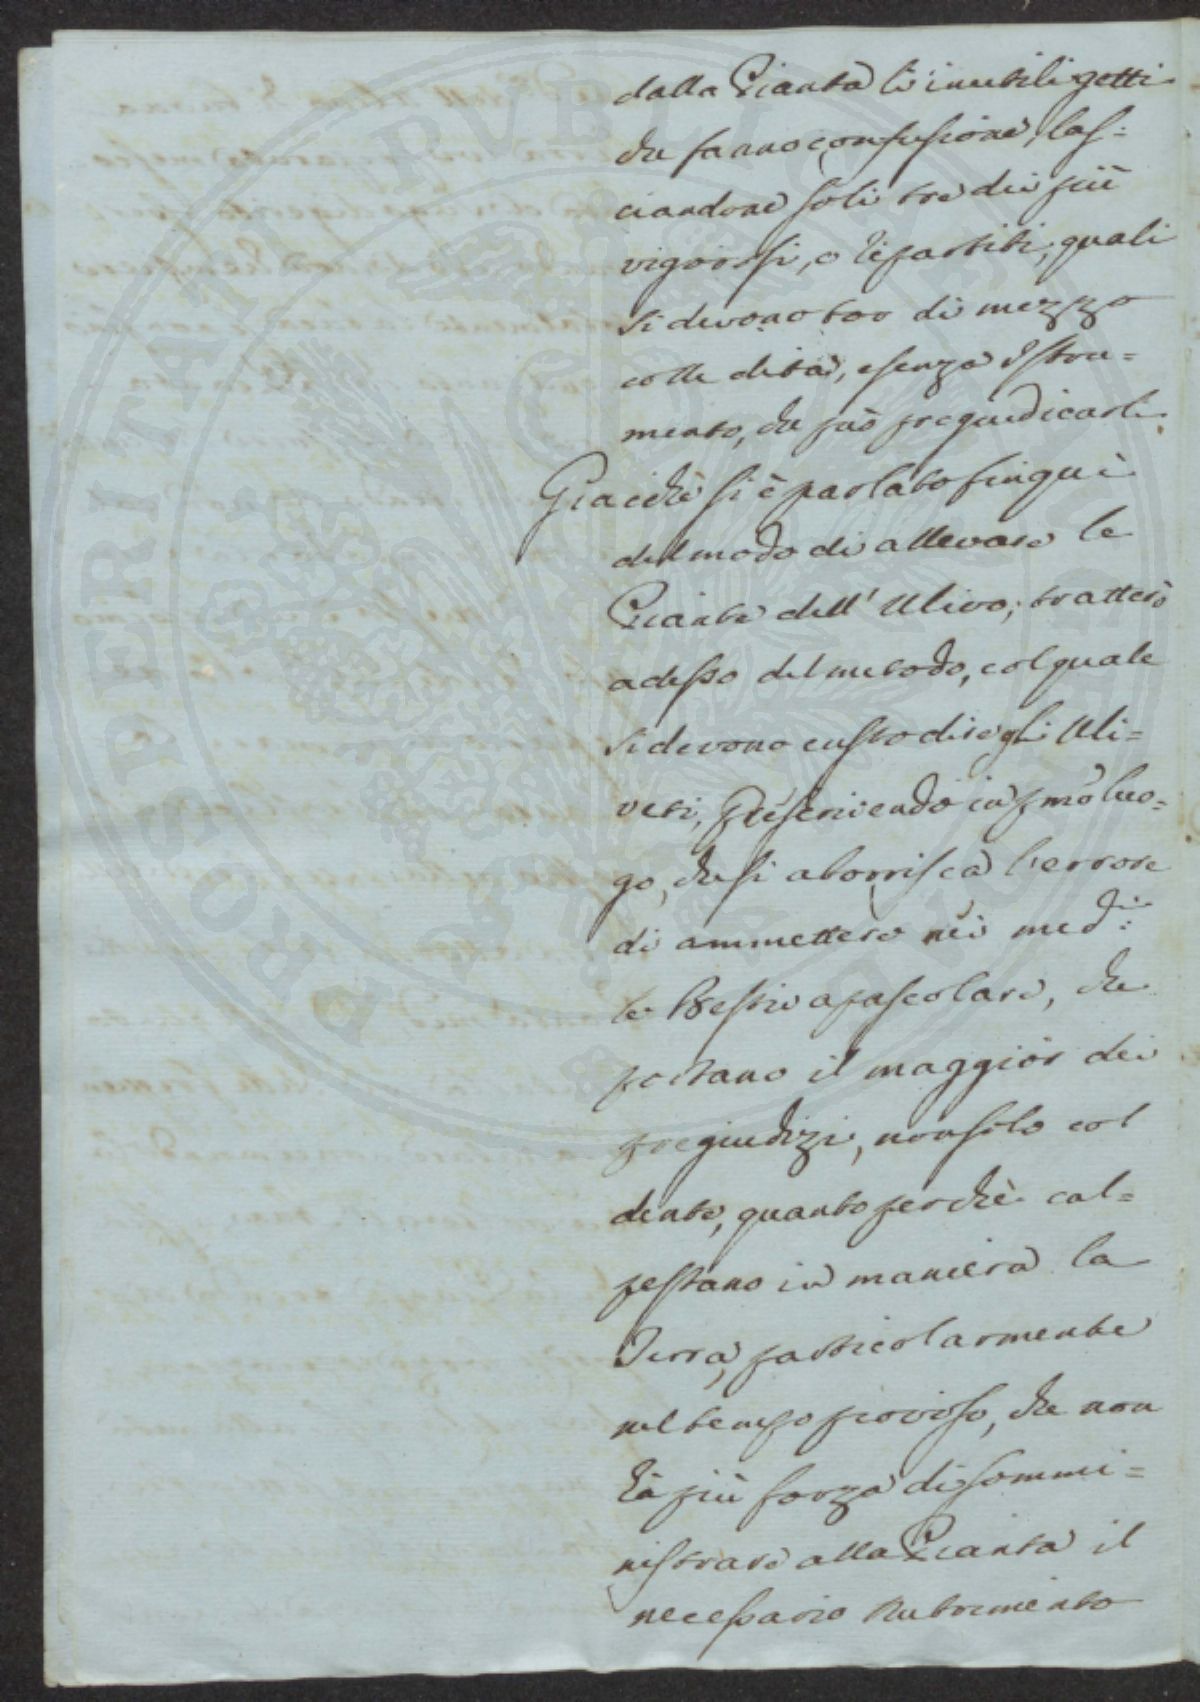 dalla Pianta li inutili getti
che fanno confusione, las=
ciandone soli tre dei più
vigorosi, e ripartiti, quali
si devono tor di mezzo
colle dita, e senza istru=
mento, che può pregiudicarli.
Giacchè si è parlato fin qui
del modo di allevare le
Piante dell' Ulivo; tratterò
adesso del metodo, col quale
si devono custodire gli Uli=
veti, prescrivendo in pmo luo=
go, che si aborrisca l'errore
di ammettere nei med.i
le Bestie a pascolare, che
portano il maggior dei
pregiudizi, non solo col
dente, quanto perchè cal=
pestano in maniera la
Terra, particolarmente
nel tempo piovoso, che non
hà più forza di sommi=
nistrare alla Pianta il
necessario Nutrimento
PROSPERITATI PVBLICAE